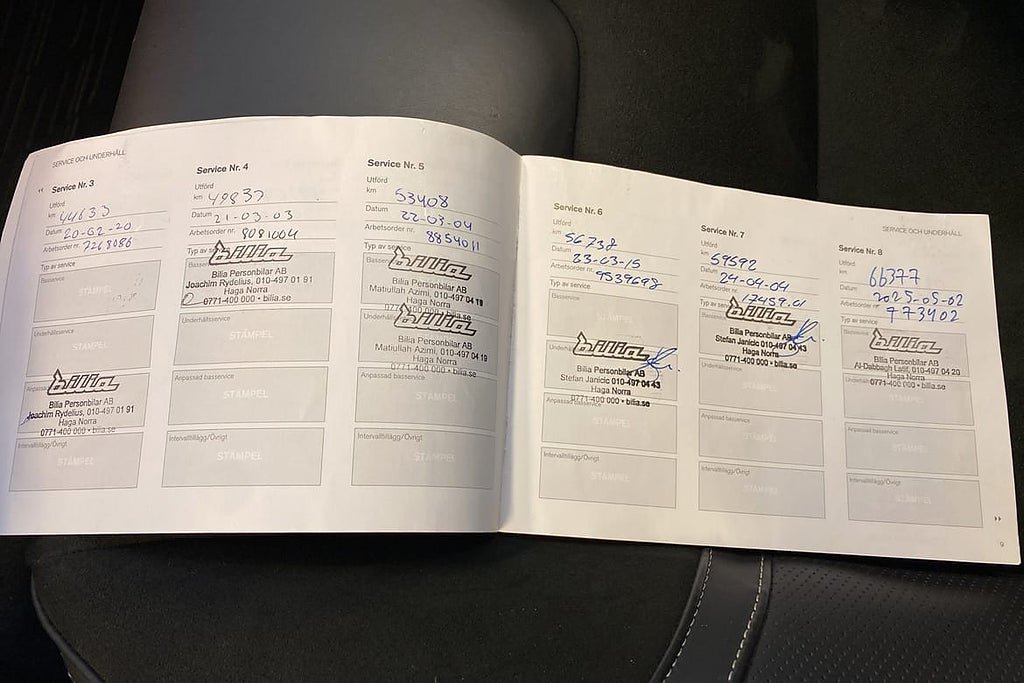 SERVICE OCH UNDERHÅLL
Service Nr. 3
Utförd
km 44633
Datum 20-02-20
Arbetsorder nr. 7268086
Typ av service
STÄMPEL
Underhållsservice
STÄMPEL
bilia
Bilia Personbilar AB
Joachim Rydelius, 010-497 01 91
Haga Norra
0771-400 000 • bilia.se
Intervalltillägg/Övrigt
STÄMPEL
Service Nr. 4
Utförd
km 49837
Datum 21-03-03
Arbetsorder nr. 8081004
Typ av
bilia
Bilia Personbilar AB
Joachim Rydelius, 010-497 01 91
Haga Norra
0771-400 000 • bilia.se
Underhållsservice
STÄMPEL
Anpassad basservice
STÄMPEL
Intervalltillägg/Övrigt
STÄMPEL
Service Nr. 5
Utförd
km 53408
Datum 22-03-04
Arbetsorder nr. 8854011
Typ av
bilia
Bilia Personbilar AB
Matiullah Azimi, 010-497 04 19
Haga Norra
0771-400 000 • bilia.se
bilia
Bilia Personbilar AB
Matiullah Azimi, 010-497 04 19
Haga Norra
0771-400 000 • bilia.se
Anpassad basservice
STÄMPEL
Intervalltillägg/Övrigt
STÄMPEL
Service Nr. 6
Utförd
km 56738
Datum 23-03-15
Arbetsorder nr. 9539682
Typ av service
Basservice
STÄMPEL
bilia
Bilia Personbilar AB
Stefan Janicic 010-497 04 43
Haga Norra
0771-400 000 • bilia.se
Anpassad basservice
STÄMPEL
Intervalltillägg/Övrigt
STÄMPEL
SERVICE OCH UNDERHÅLL
Service Nr. 7
Utförd
km 59592
Datum 24-04-04
Arbetsorder nr. 17459.01
Typ av
bilia
Bilia Personbilar AB
Stefan Janicic 010-497 04 43
Haga Norra
0771-400 000 • bilia.se
Underhållsservice
STÄMPEL
Anpassad basservice
STÄMPEL
Intervalltillägg/Övrigt
STÄMPEL
Service Nr. 8
Utförd
km 61377
Datum 2025-05-02
Arbetsorder nr. 773402
Typ av service
bilia
Bilia Personbilar AB
Al-Dabbagh Latif, 010-497 04 20
Haga Norra
0771-400 000 • bilia.se
STÄMPEL
Anpassad basservice
STÄMPEL
Intervalltillägg/Övrigt
STÄMPEL
9